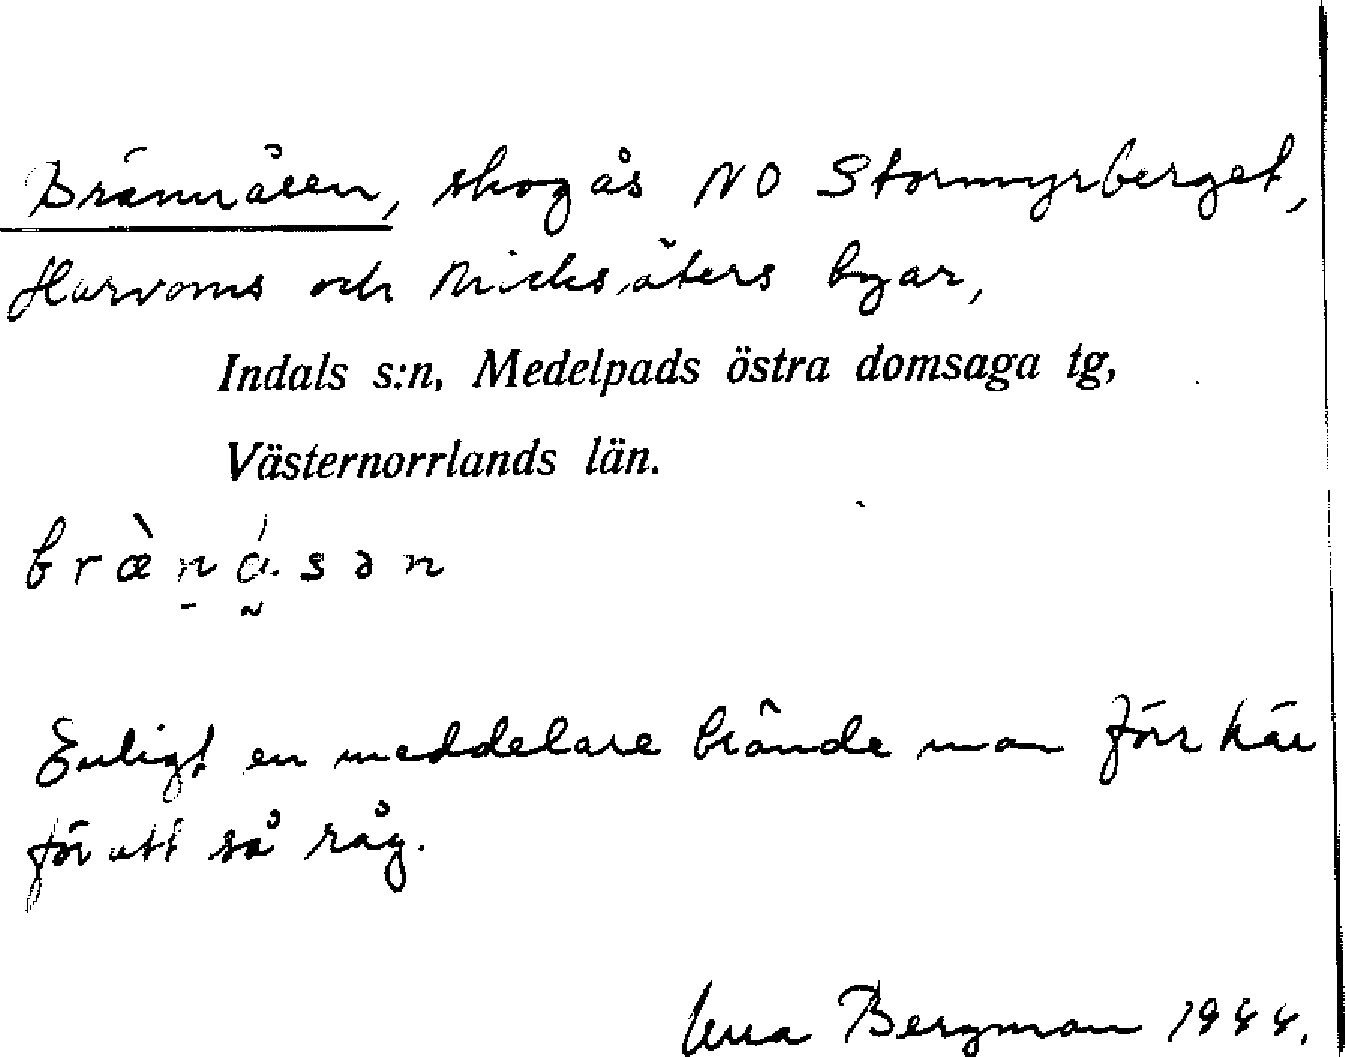 Brännåsen, skogås NO Stormyrberget,
Harvoms och Nicksäters byar,
Indals s:n, Medelpads östra domsaga tg,
Västernorrlands län.
bræ̀n̠á̰.sən
Enligt en meddelare brände man förr här
för att så råg.
Bergman 1944.